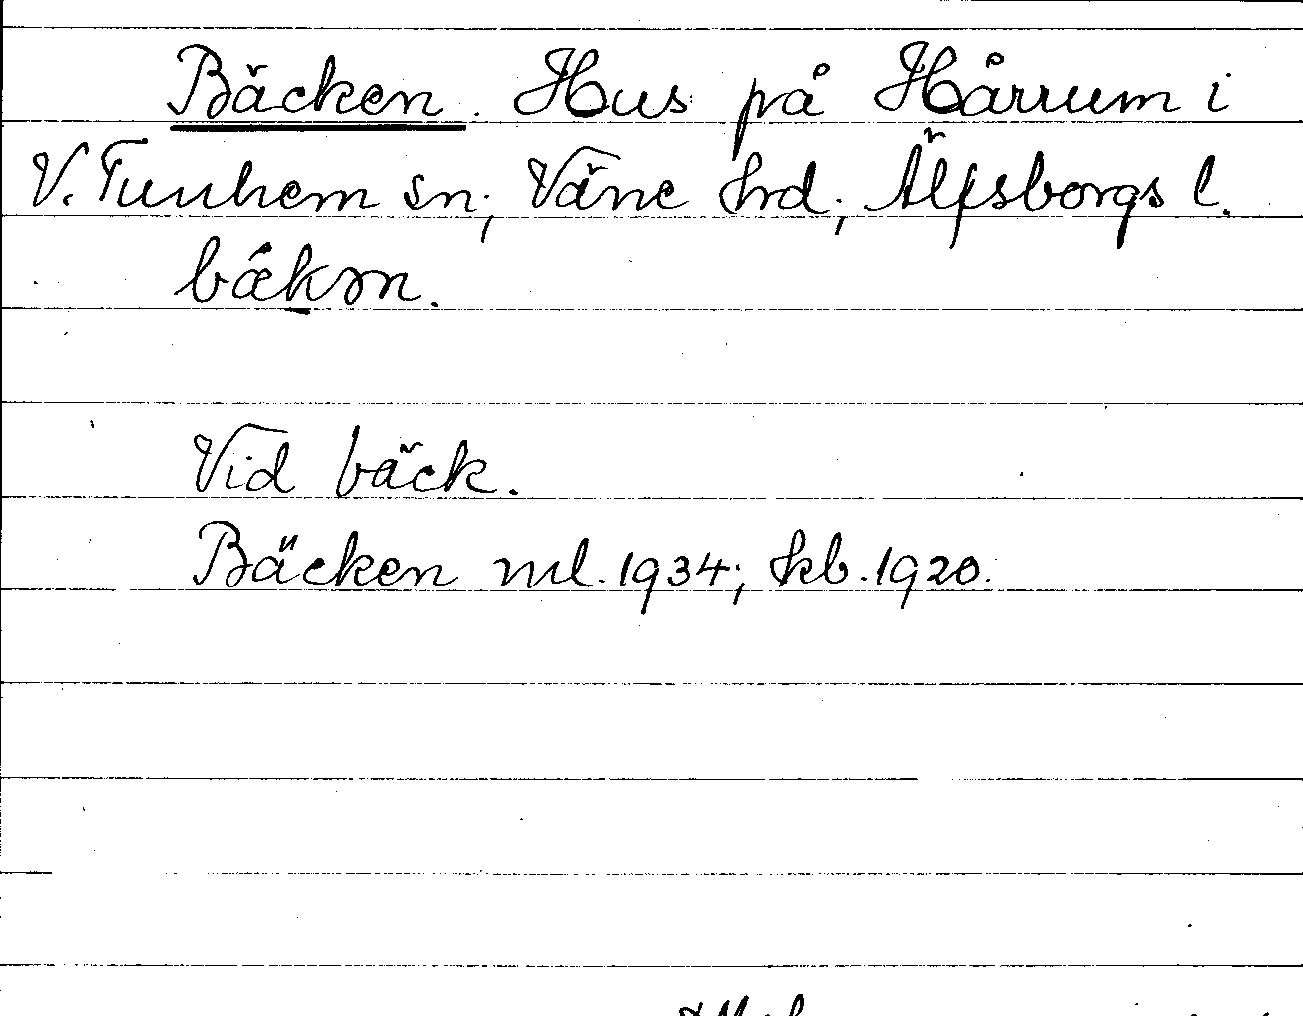 Bäcken. Hus på Hårrum i
V. Tunhem sn; Väne hd; Älfsborgs l.
Vid bäck.
Bäcken ml. 1934; kb. 1920.